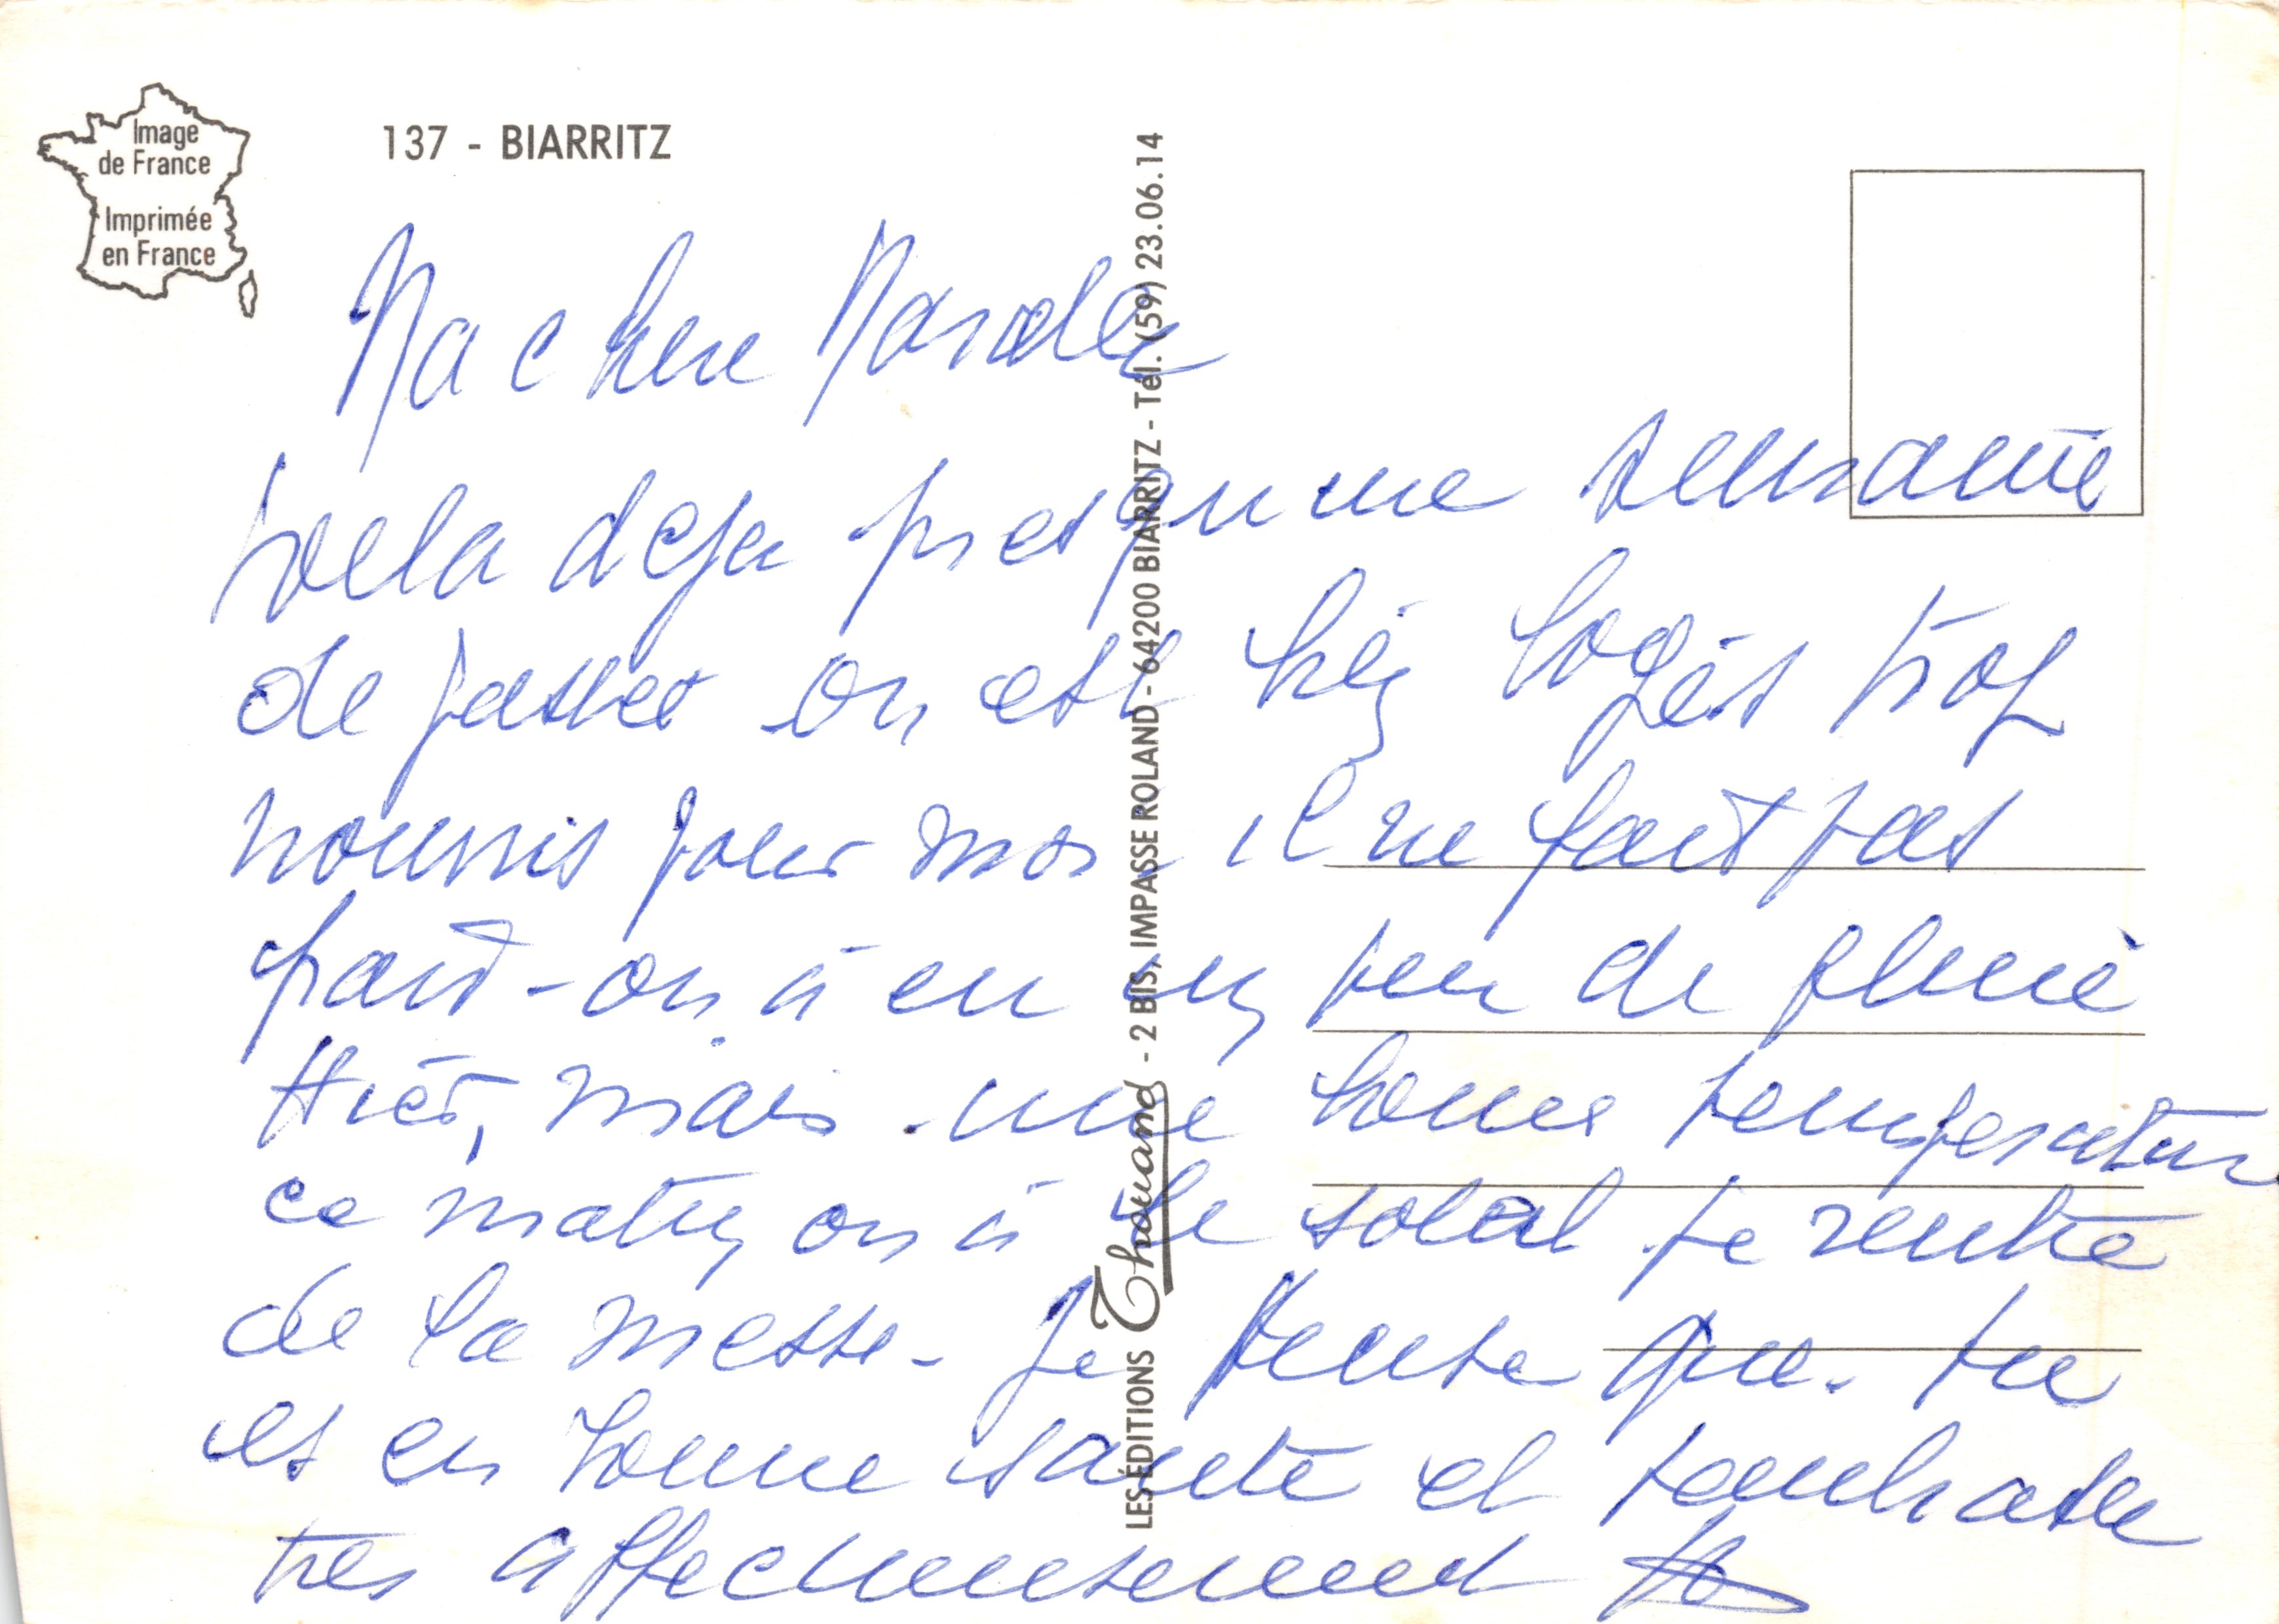 Image
de France
Imprimée
en France
137 - BIARRITZ
LES ÉDITIONS Thouand - 2 BIS, IMPASSE ROLAND - 64200 BIARRITZ - Tél. (59) 23.06.14
Ma chere
Voila deja presqu une semaine
de passer on est bien logés trop
nourris pour moi il ne fait pas
froid - on à eu un peu de pluie
Hier, mais une bonne temperature
ce matin on à le soleil je rentre
de la messe - Je pense que tu
es en bonne santé et tembrasse
tres affectueusement